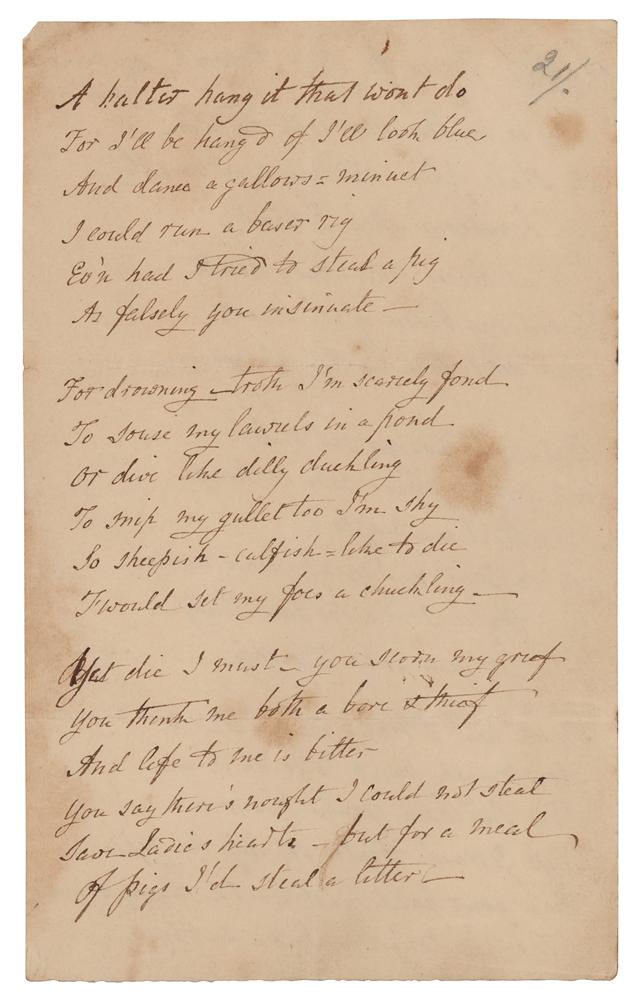 21/.
A halter hang it that wont do
For I'll be hang'd if I'll look blue
And dance a gallows=minuet
I could run a baser rig
Ev'n had I tried to steal a pig
As falsely you insinuate —
For drowning — troth I'm scarcely fond
To souse my laurels in a pond
Or dive like dilly duckling
To snip my gullet too I'm shy
So sheepish - calfish=like to die
T'would set my foes a chuckling —
Yet die I must — you scorn my grief
You think me both a bore & thief
And life to me is bitter
You say there's nought I could not steal
Save Ladies hearts — but for a meal
Of pigs I'd steal a litter —